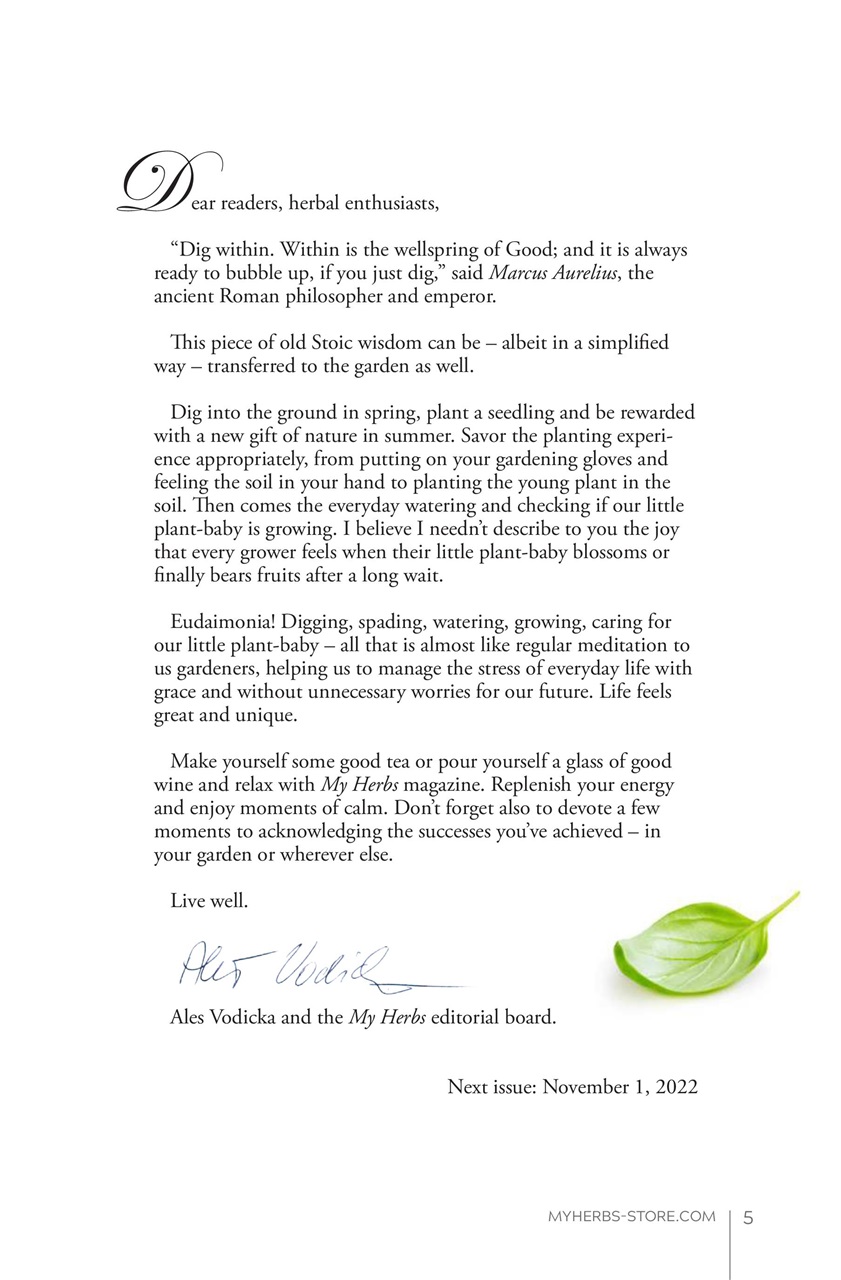 Dear readers, herbal enthusiasts,
“Dig within. Within is the wellspring of Good; and it is always
ready to bubble up, if you just dig,” said Marcus Aurelius, the
ancient Roman philosopher and emperor.
This piece of old Stoic wisdom can be – albeit in a simplified
way – transferred to the garden as well.
Dig into the ground in spring, plant a seedling and be rewarded
with a new gift of nature in summer. Savor the planting experi-
ence appropriately, from putting on your gardening gloves and
feeling the soil in your hand to planting the young plant in the
soil. Then comes the everyday watering and checking if our little
plant-baby is growing. I believe I needn’t describe to you the joy
that every grower feels when their little plant-baby blossoms or
finally bears fruits after a long wait.
Eudaimonia! Digging, spading, watering, growing, caring for
our little plant-baby – all that is almost like regular meditation to
us gardeners, helping us to manage the stress of everyday life with
grace and without unnecessary worries for our future. Life feels
great and unique.
Make yourself some good tea or pour yourself a glass of good
wine and relax with My Herbs magazine. Replenish your energy
and enjoy moments of calm. Don’t forget also to devote a few
moments to acknowledging the successes you’ve achieved – in
your garden or wherever else.
Live well.
Aleš Vodička
Ales Vodicka and the My Herbs editorial board.
Next issue: November 1, 2022
MYHERBS-STORE.COM 5